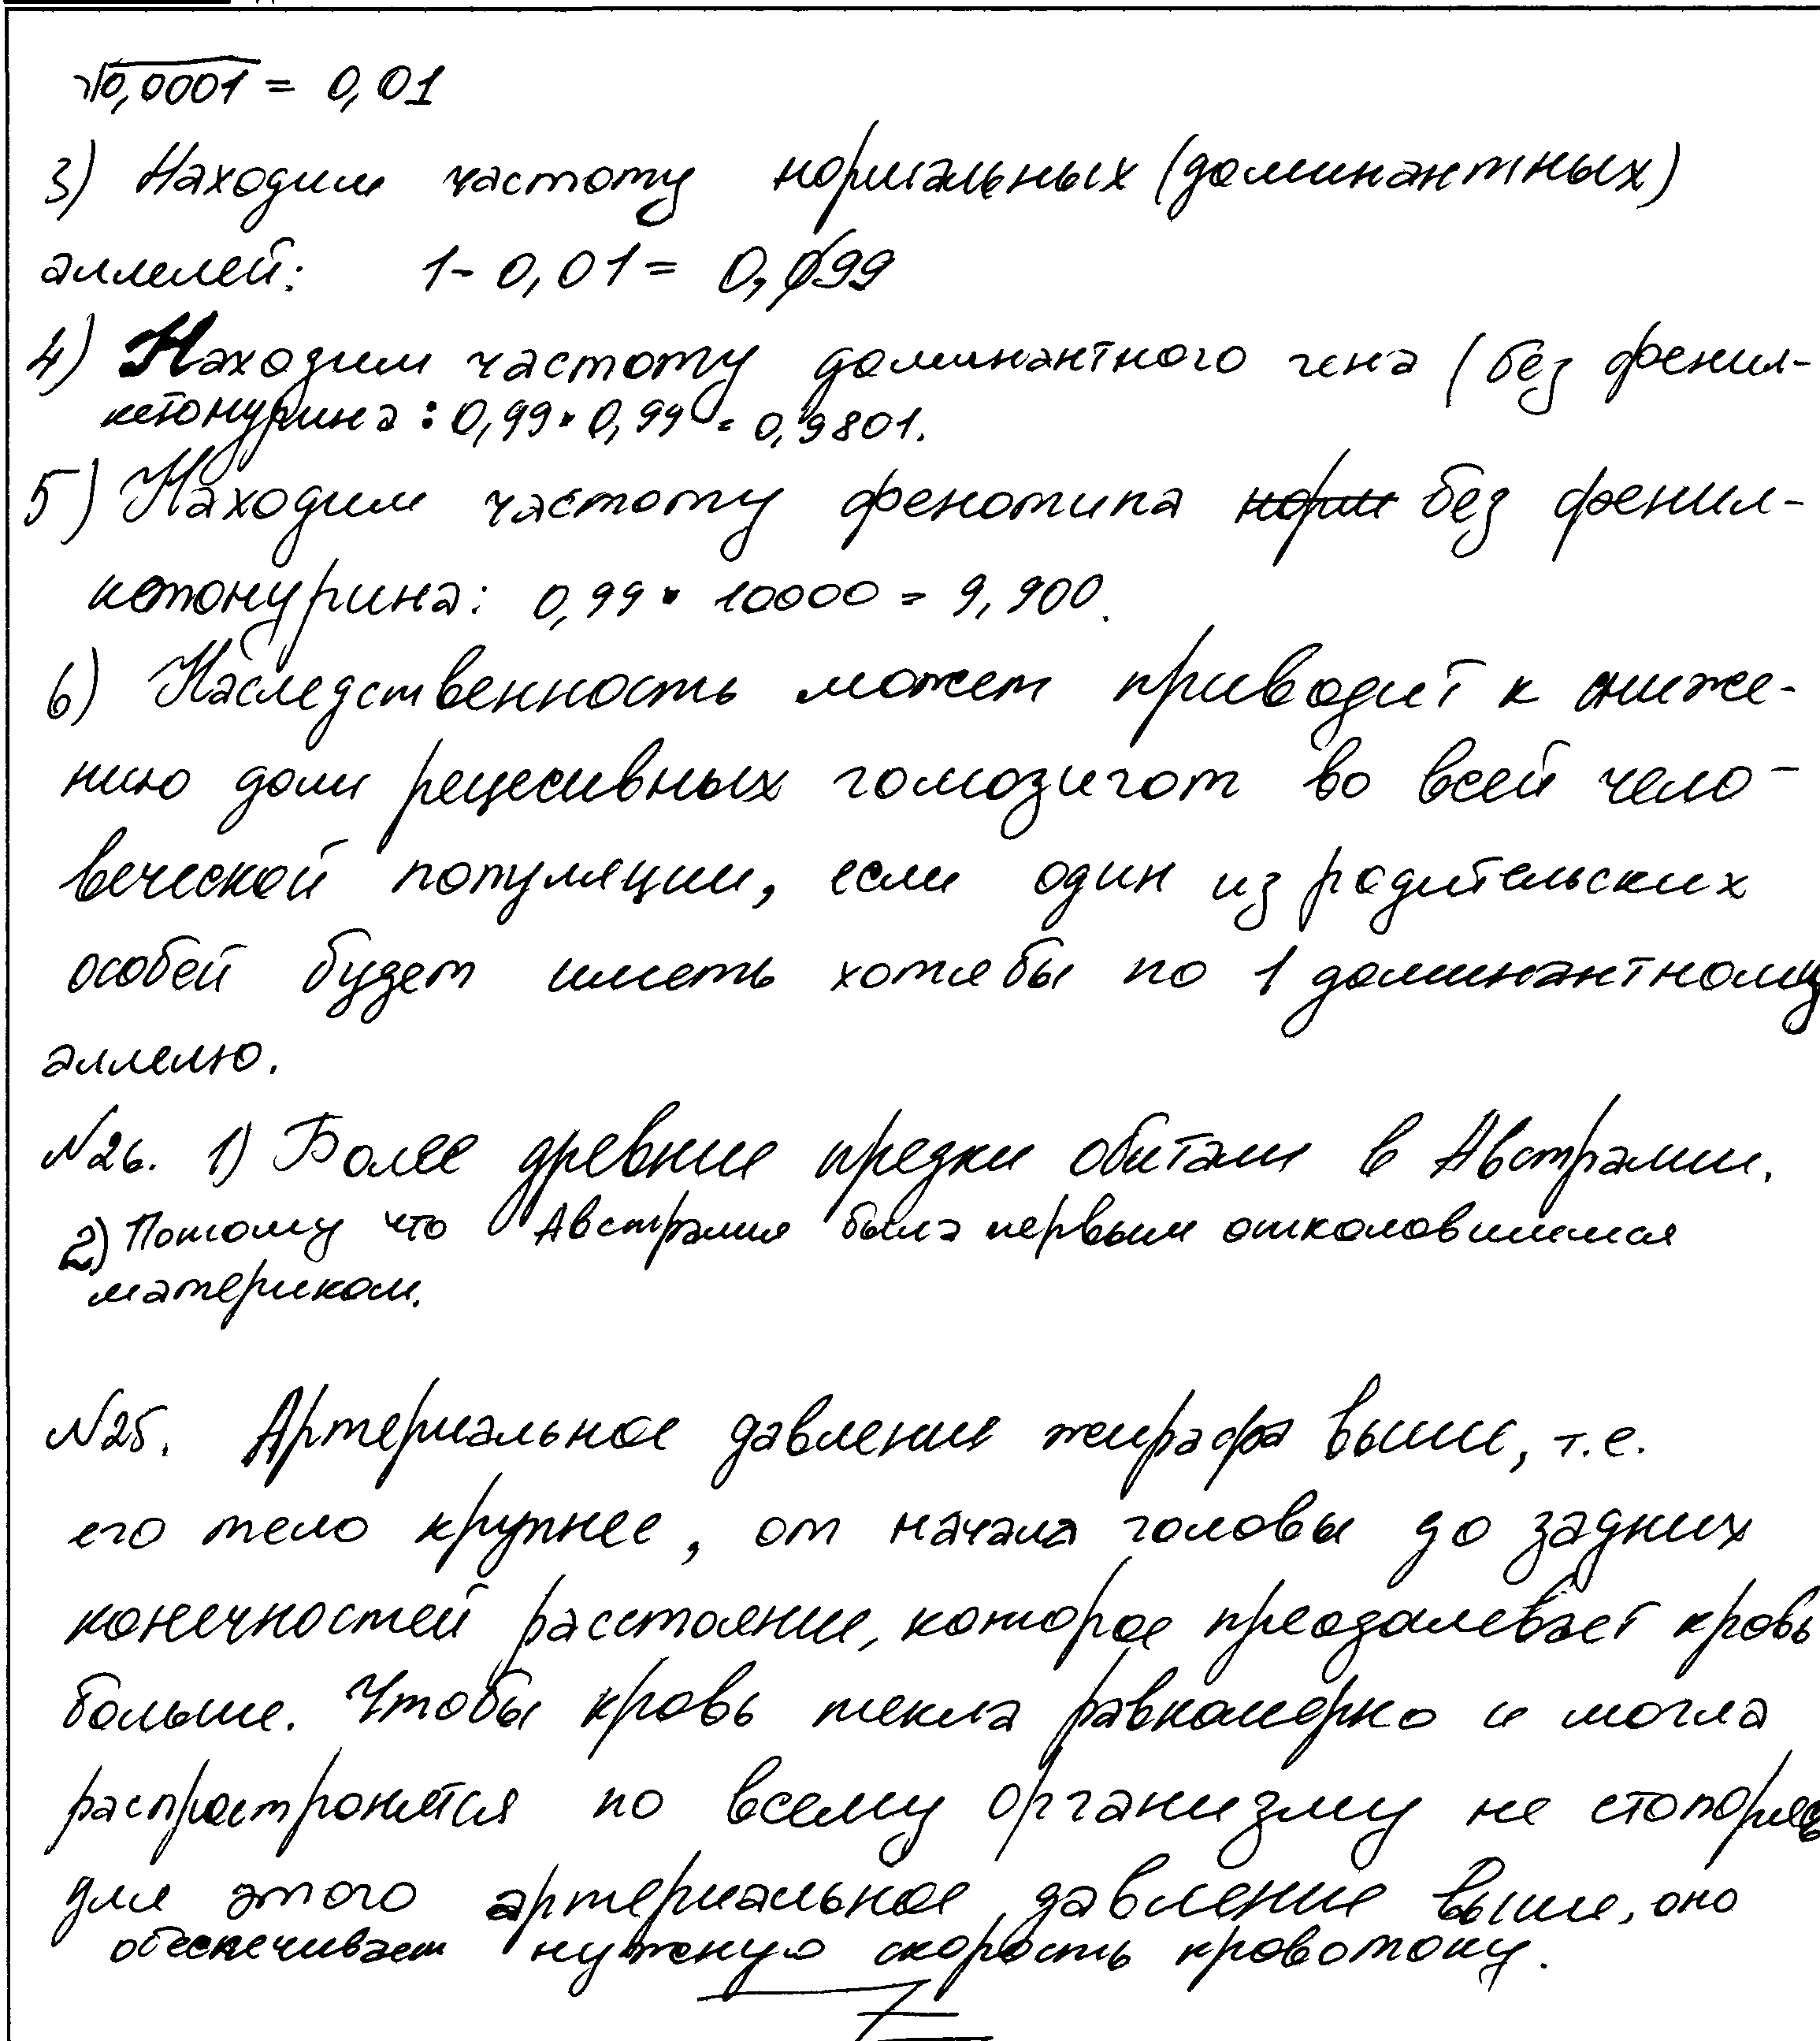 √0,0001 = 0,01
3) Находим частоту нормальных (доминантных)
аллелей: 1 - 0,01 = 0,099
4) Находим частоту доминантного гена (без фенил-
кетонурина: 0,99 · 0,99 = 0,9801.
5) Находим частоту фенотипа норм без фенил-
кетонурина: 0,99 · 10000 = 9,900.
6) Наследственность может приводит к сниже-
нию доли рецесивных гомозигот во всей чело-
веческой популяции, если один из родительских
особей будет иметь хотябы по 1 доминантному
аллелю.
№26. 1) Более древние предки обитали в Австралии.
2) Потому что Австралия была первым отколовшимся
материком.
№25. Артериальное давление жирафа выше, т.е.
его тело крупнее, от начала головы до задних
конечностей расстояние, которое преодалевает кровь
больше. Чтобы кровь текла равномерно и могла
распростронятся по всему организму не стопорясь
для этого артериальное давление выше, оно
обеспечивает нужную скорость кровотоку.